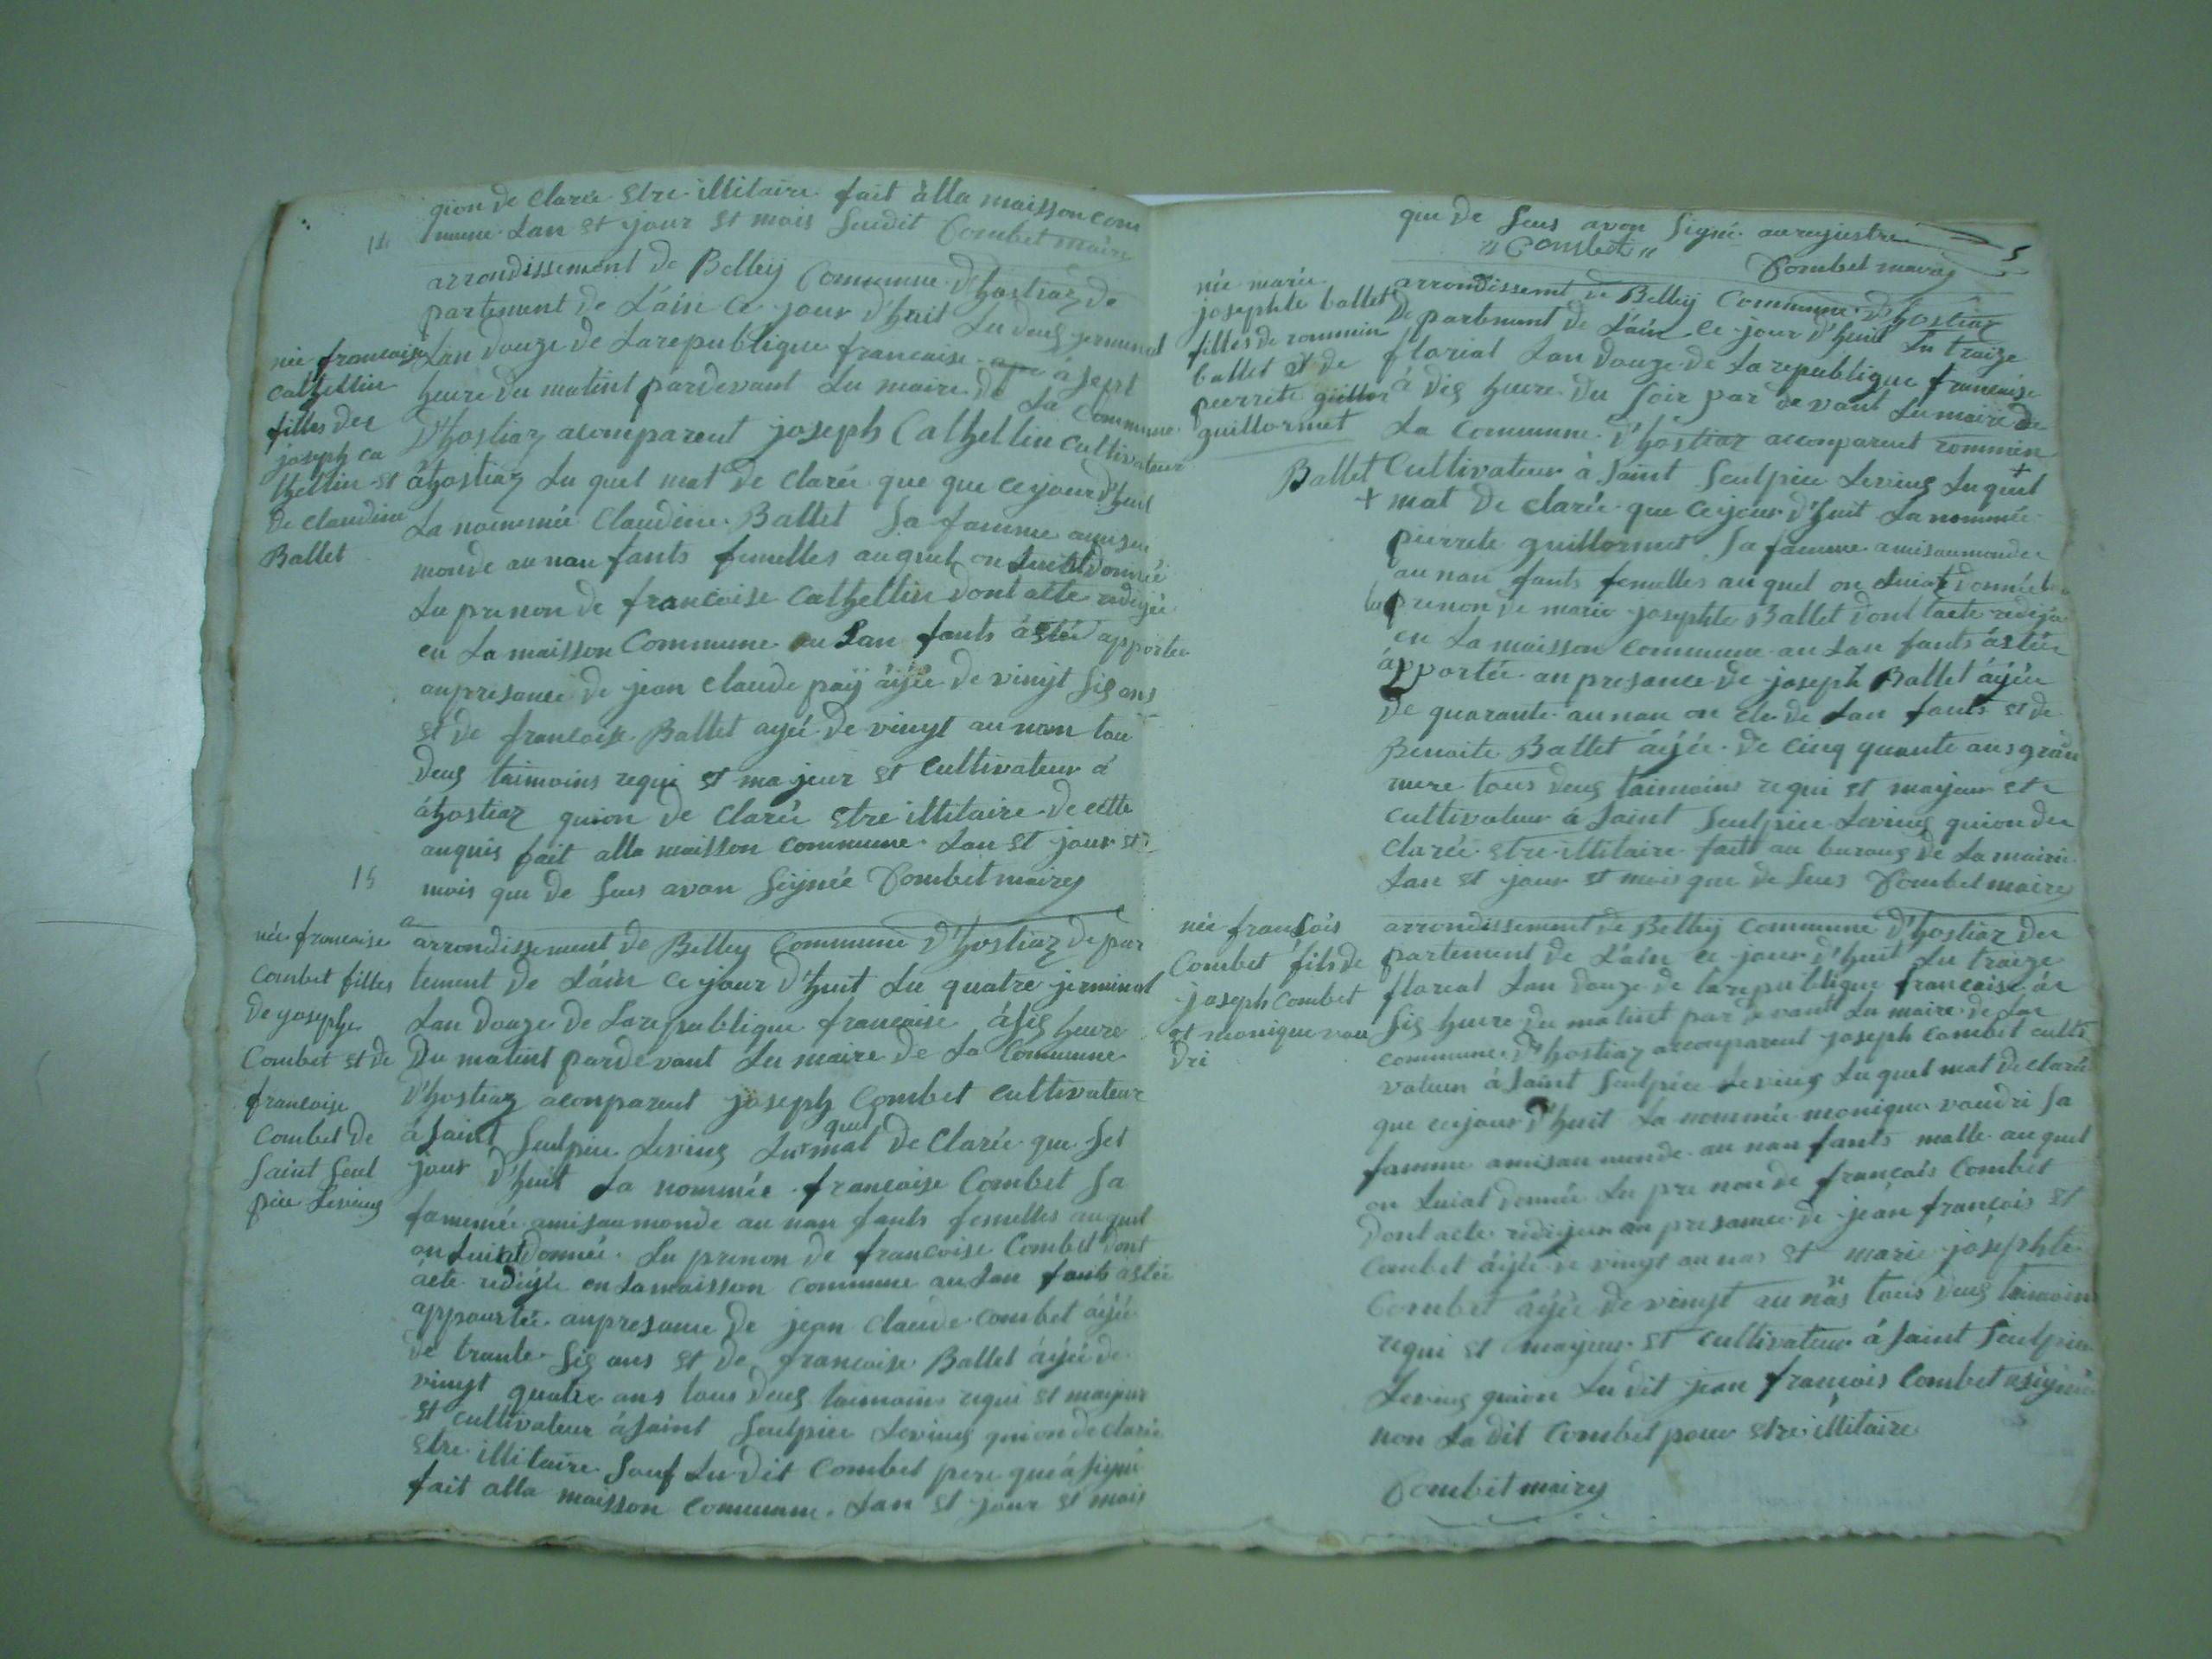 qion de clarée estre illitaire fait àlla maisson com
mune lan et jour et mois sucdit Combet maire
14
arrondissement de Belley Commune d'hostiaz de
partement de L'ain Ce jour d'huit Lu deus jerminal
née francoise
cathellin
filles de
joseph ca
thellin et
de claudine
Ballet
Lan douze de Larepublique francaise à sept
heure du matint pardevant Lu maire de La Commune
d'hostiaz acomparent joseph Cathellin Cultivateur
àhostiaz Lu quel mat de clarée que que cejour d'huit
La nommée Claudine Ballet sa famme amisau
monde au nau fants femelles auquel on Luiat donnée
Lu prenon de francoise cathellin dont atte redigée
en La maisson Commune au Lan fants àstée apportée
aupresance de jean claude pay àijée de vingt sis ans
et de francoise Ballet ayée de vingt au nom tou
deus taimoins requi et majeur et Cultivateur à
àhostiaz quion de clarée estre illitaire de cette
anquis fait alla maisson commune Lan et jour et
mois que de sus avon signée Combet mairey
15
née francoise
combet filles
de josephe
Combet et de
francoise
Combet de
saint seul
pice Levieus
arrondissement de Belley Commune D'hostiaz depar
tement de L'ain Ce jour d'huit Lu quatre jerminal
Lan douze de Larepublique francaise àsis heure
Du matint pardevant Lu maire de La Commune
d'hostiaz acomparent joseph Combet cultivateur
à saint seulpice Levieus Lu quel mat de clarée que set
jour d'huit La nommée francoise Combet sa
famemée amisaumonde au nau fants femelles auquel
on Luiat donnée Lu prenon de francoise Combet dont
àcte redigée en Lamaisson commune au Lan fants àstée
appourtée aupresance de jean claude combet àijée
de trante sis ans et de francoise Ballet àijée de
vingt quatre ans tous deus taimoins requi et majeur
et cultivateur à saint seulpice Levieus quion de clarée
estre illitaire sauf Ludit Combet pere quià signé
fait alla maisson commune Lan et jour et mois
que de sus avon signé au rejistre
5
"Combet"
Combet mairey
née marie
josephte ballet
filles de rommin
ballet et de
pierrete guillor
guillormet
arrondissemt de Belley Commune d'hostiaz
De partement de L'ain ce jour d'huit Lu traize
florial Lan douze de La republique francaise
à dis heure du soir par de vant Lu maire de
La Commune d'hostiaz acomparent rommin
Ballet Cultivateur à saint seulpice Levieus Lu quel +
+ mat de clarée que cejour d'huit La nommée
pierrete guillormet sa famme amisaumonde
au nau fants femelles auquel on Luiat donnée
Lu prenon de marie josephte Ballet dont lacte redigée
en La maisson commune au Lan fants àstée
àpportée au presance de joseph Ballet àijée
de quarante au nau on cle de Lan fants et de
Benoite Ballet àijée de cinq quante ans gran
mere tous deus taimoins requi et majeur et
cultivateur à saint seulpice Levieus quion de
clarée estre illitaire fait au buraus de La mairie
Lan et jour et mois que de sus Combet mairey
née francois
Combet fils de
joseph Combet
et monique vau
dri
arrondissement de Belley commune d'hostiaz de
partement de L'ain ce jour d'huit Lu traize
florial Lan douze de larepublique francaise à
sis heure du matint par de vant Lu maire de La
commune d'hostiaz acomparent joseph combet culti
vateur à saint seulpice Levieus Luquel mat de clarée
que cejour d'huit La nommée monique vaudri sa
famme amisau monde au nau fants malle auquel
on Luiat donnée Lu pre non de francois Combet
dont acte redigee au presance de jean francois et
Combet àijée de vingt au nas et marie josephte
Combet àijée de vingt au nas tous deus taimoin
requi et majeur et cultivateur à saint seulpice
Levieus quion Lu dit jean francois Combet asignée
non La dit Combet pour estre illitaire
Combet mairey